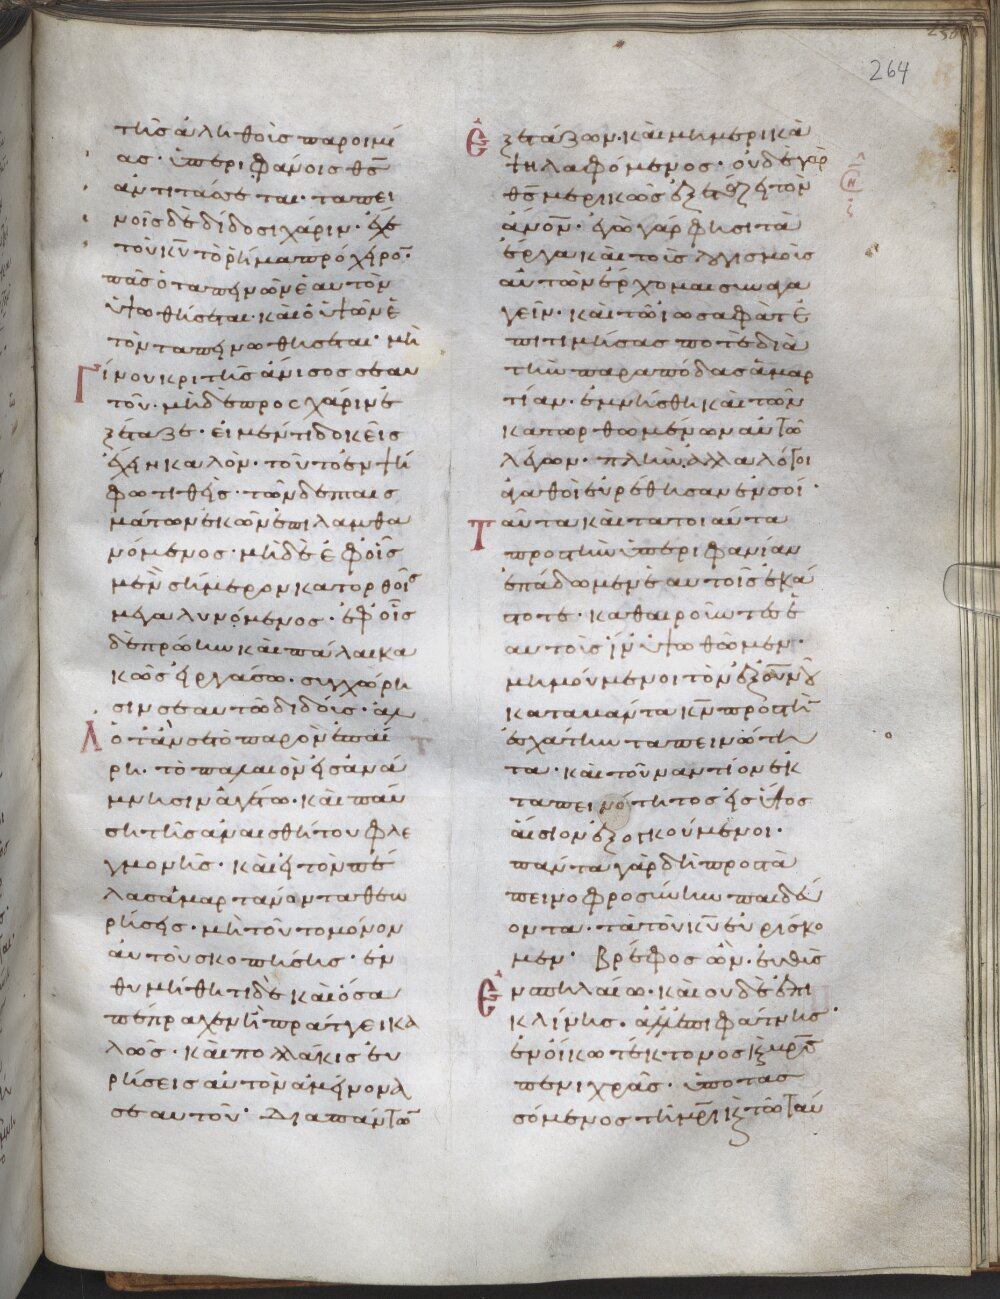 264
της ἀληθοῦς παροιμί
ας· ὑπεριφάνοις θς
ἀντιτάσσεται· ταπει
νοῖς δὲ δίδοσι χάριν· ἔχε
τοῦ κυ τὸ ῥῆμα πρόχειρο·
πᾶς ὁ ταπεινῶν ἑαυτὸν
ὑψωθήσεται· καὶ ὁ ὑψῶν ἑ
τὸν ταπεινωθήσεται· μὴ
Γίνου κριτὴς ἄνισος σεαυ
τοῦ· μηδὲ προς χάριν ἐ
ξέταζε· εἰ μέν τι δοκεῖς
ἔχειν καλὸν· τοῦτο ἐν ψή
φω τιθεὶς· τῶν δὲ πταισ
μάτων ἑκὼν ἐπιλανθα
νόμενος· μηδὲ ἐφ οἷς
μὲν σήμερον κατορθοῖς
μεγαλυνόμενος· ἐφ οἷς
δὲ πρώην καὶ πάλαι κα
κῶς εἰργάσω· συγχώρη
σιν σεαυτῶ διδοὺς· ἀλ
λ ὅταν σε τὸ παρὸν ἐπαί
ρη· τὸ παλαιὸν εἰς ἀνά
μνησιν ἀγέτω· καὶ παύ
ση τῆς ἀναισθήτου φλε
γμονῆς· κἂν εἰ τὸν πέ
λας ἁμαρτάνοντα θεω
ρήσεις· μὴ τοῦτο μόνον
αὐτοῦ σκοπήσης· ἐν
θυμήθητι δὲ καὶ ὅσα
πέπραχεν ἢ πράττει κα
λῶς· καὶ πολλάκις εὑ
ρήσεις αὐτὸν ἀμείνονα
σεαυτοῦ· Διὰ πάντω
ἐξετάζων· καὶ μὴ μερικὰ
ψηλαφόμενος· οὐδὲ γὰρ
θς μερικῶς ἐξετάζει τὸν
ἄνον· ἐγὼ γὰρ φησι τὰ
ἔργα καὶ τοὺς λογισμοὺς
αὐτῶν ἔρχομαι συναγα
γεῖν· καὶ τῶ ἰωσαφὰτ ἐ
πιτιμήσας ποτὲ διὰ
τὴν παρα πόδας ἁμαρ
τίαν· ἐμνήσθη καὶ τῶν
κατωρθωμένων αὐτῶ
λέγων· πλὴν ἀλλα λόγοι
ἀγαθοὶ εὑρέθησαν ἐν σοί·
Ταῦτα καὶ τὰ τοιαῦτα
προς τὴν ὑπεριφανίαν
ἐπάδωμεν ἑαυτοῖς ἑκά
στοτε· καθαιροῦντες ἑ
αυτοὺς ἵν ὑψωθῶμεν·
μιμούμενοι τὸν ἐξ οὐνοῦ
καταβάντα κν προς τὴν
ἐσχάτην ταπεινότη
τα· καὶ τοὐναντίον ἐκ
ταπεινότητος εἰς ὕψος
ἄξιον ἐξοικούμενοι·
πάντα γὰρ δὴ προς τα
πεινοφροσύνην παιδεύ
οντα· τὰ τοῦ κυ εὑρίσκο
μεν· βρέφος ὢν· εὐθὺς
Ἐν σπηλαίω· καὶ οὐδὲ ἐπὶ
κλίνης· ἀλλ ἐπι φάτνης·
ἐν οἴκω τέκτονος καὶ μρς
πενιχρᾶς· ὑποτασ
σόμενος τῆ μρι καὶ τῶ ταύ